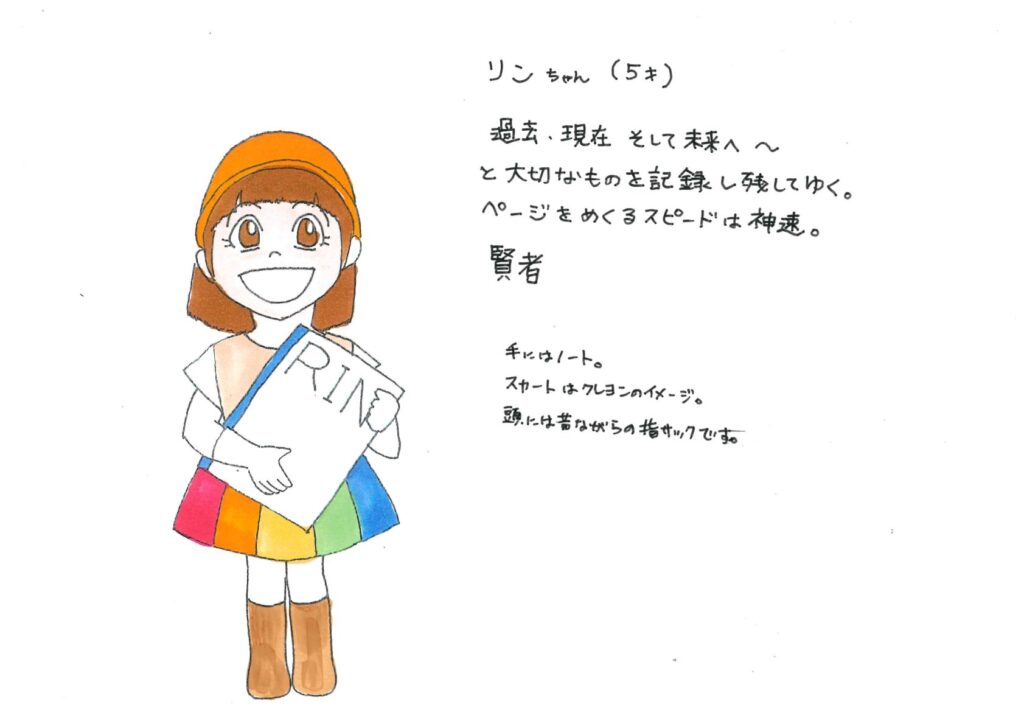 リンちゃん (5才)
過去、現在 そして未来へ〜
と大切なものを記録し残してゆく。
ページをめくるスピードは神速。
賢者
手にはノート。
スカートはクレヨンのイメージ。
頭には昔ながらの指サックです。
RIN